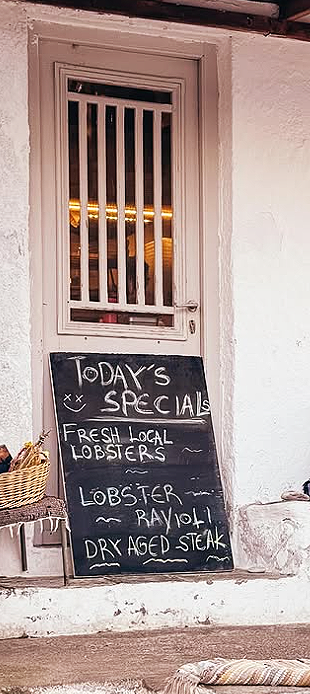 TODAY'S
SPECIALS
FRESH LOCAL
LOBSTERS
LOBSTER
RAVIOLI
DRY AGED STEAK